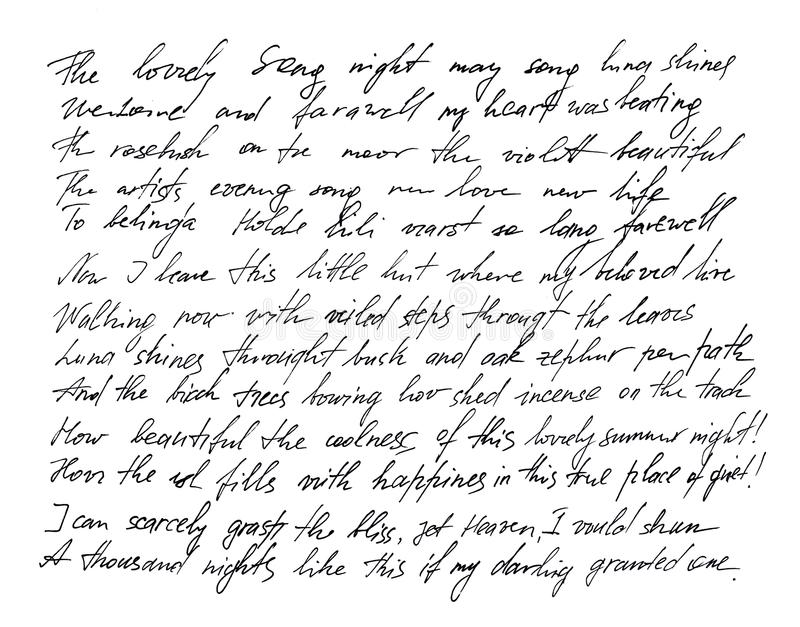 The lovely Song night may song luna shines
Welcome and farawell my heart was beating
Th rosebush on the moor the violett beautiful
The artists evening song new love new life
To belinda Holde Lili warst so long farewell
Now I leave this little hut where my beloved live
Walking now with veiled steps througt the leaves
Luna shines throught bush and oak zephur per path
And the birch trees bowing how shed incense on the track
How beautiful the coolness of this lovely summer night!
How the fills with happines in this true place of quiet!
I can scarcely grasp the bliss, yet Heaven, I would shun
A thousand nights like this if my darling granted one.
dreamstime